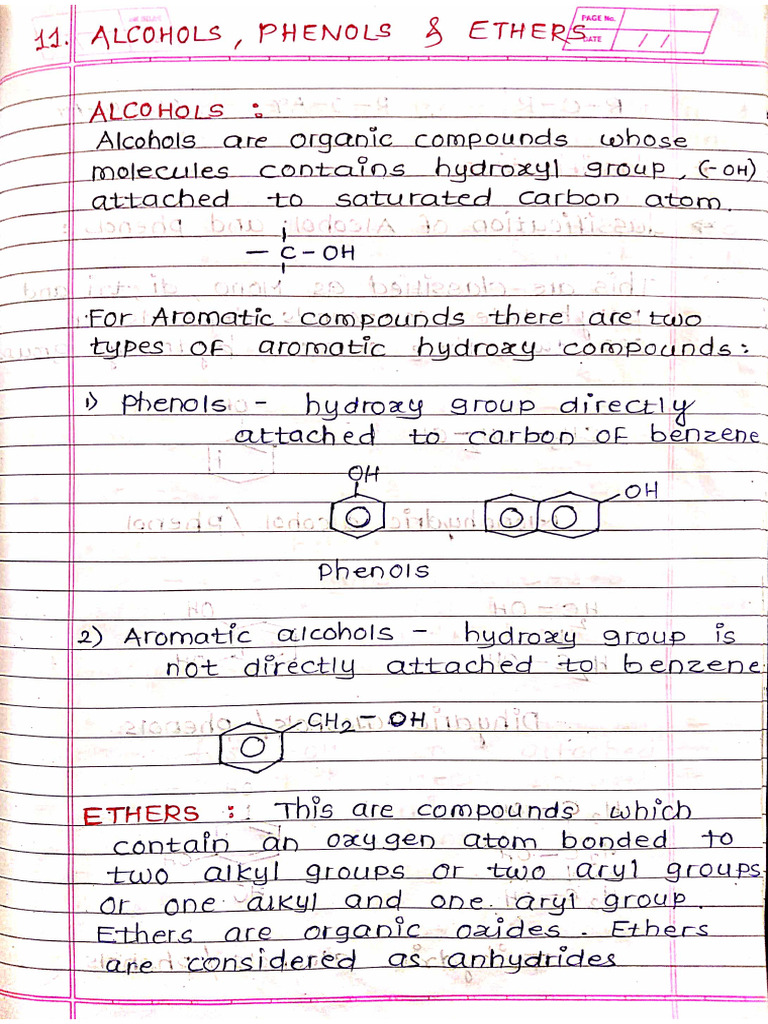 11. ALCOHOLS, PHENOLS & ETHERS
PAGE No.
DATE / /
ALCOHOLS :
Alcohols are organic compounds whose
molecules contains hydroxyl group, (-OH)
attached to saturated carbon atom.
— C — OH
For Aromatic compounds there are two
types of aromatic hydroxy compounds :
1) Phenols - hydroxy group directly
attached to carbon of benzene
OH
OH
Phenols
2) Aromatic alcohols - hydroxy group is
not directly attached to benzene
CH2 - OH
ETHERS : This are compounds which
contain an oxygen atom bonded to
two alkyl groups or two aryl groups
or one alkyl and one aryl group.
Ethers are organic oxides. Ethers
are considered as anhydrides